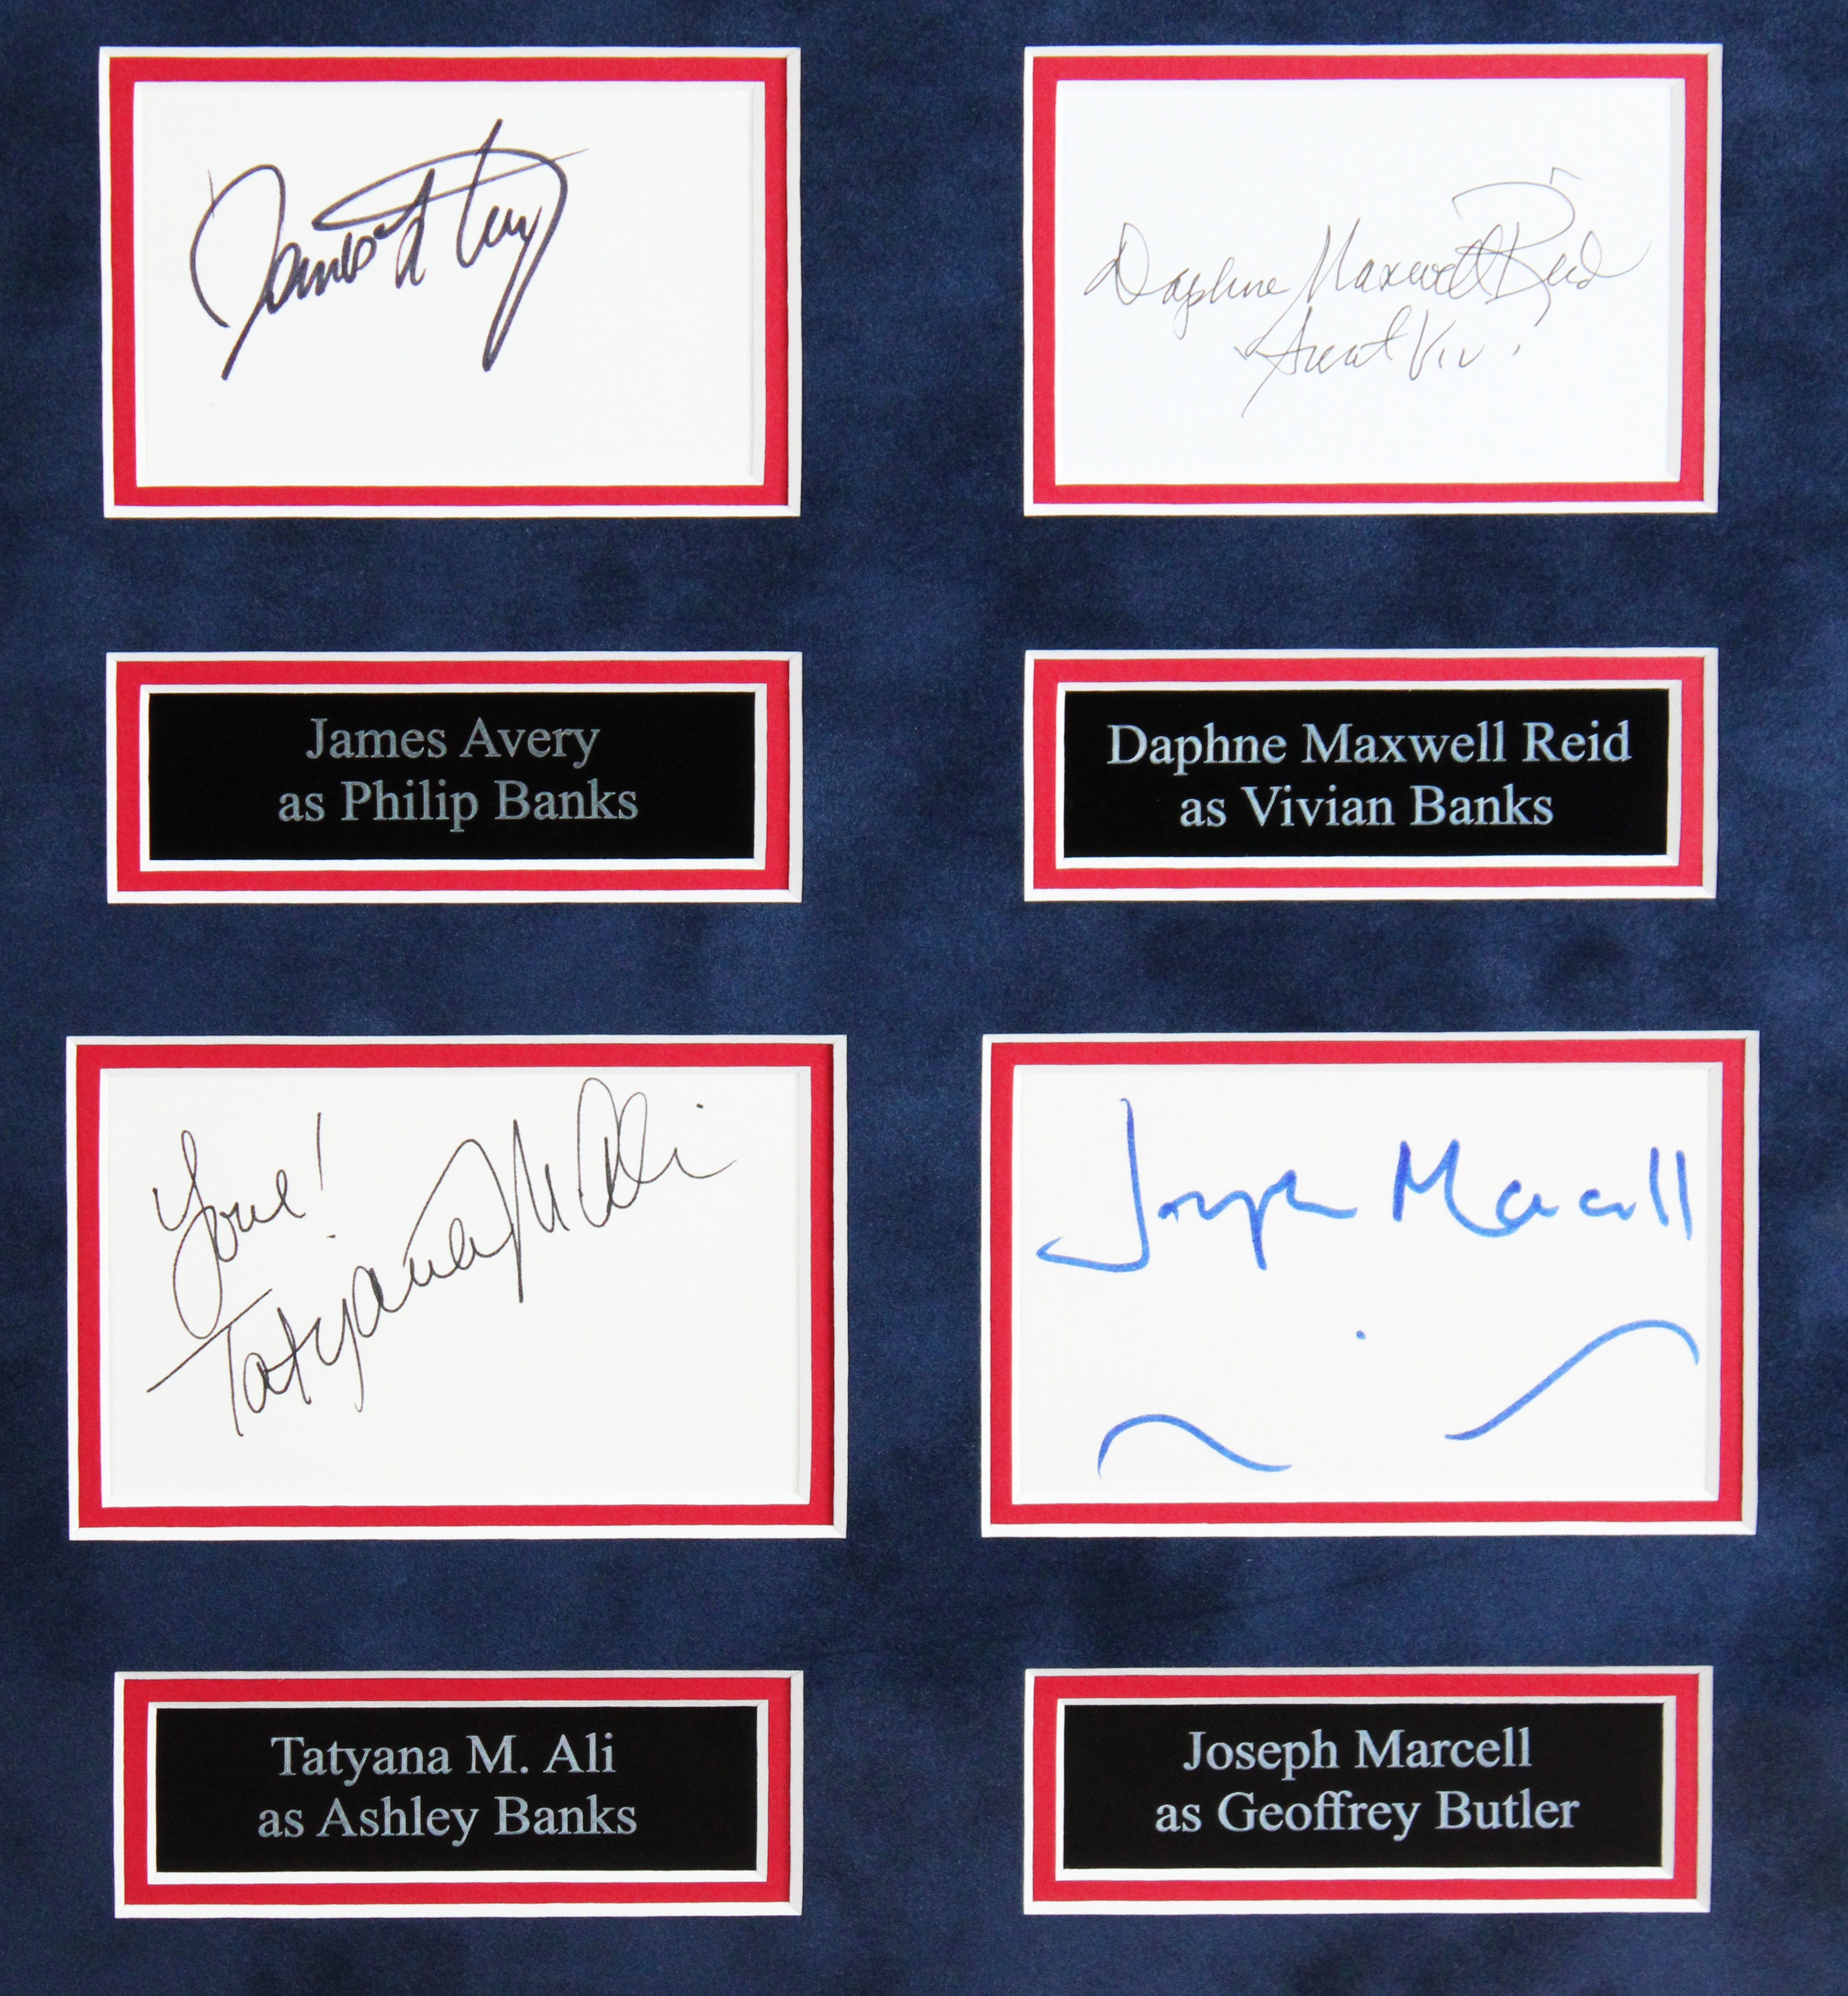 James Avery
Daphne Maxwell Reid
Aunt Viv!
James Avery
as Philip Banks
Daphne Maxwell Reid
as Vivian Banks
Love!
Tatyana M Ali
Joseph Marcell
Tatyana M. Ali
as Ashley Banks
Joseph Marcell
as Geoffrey Butler